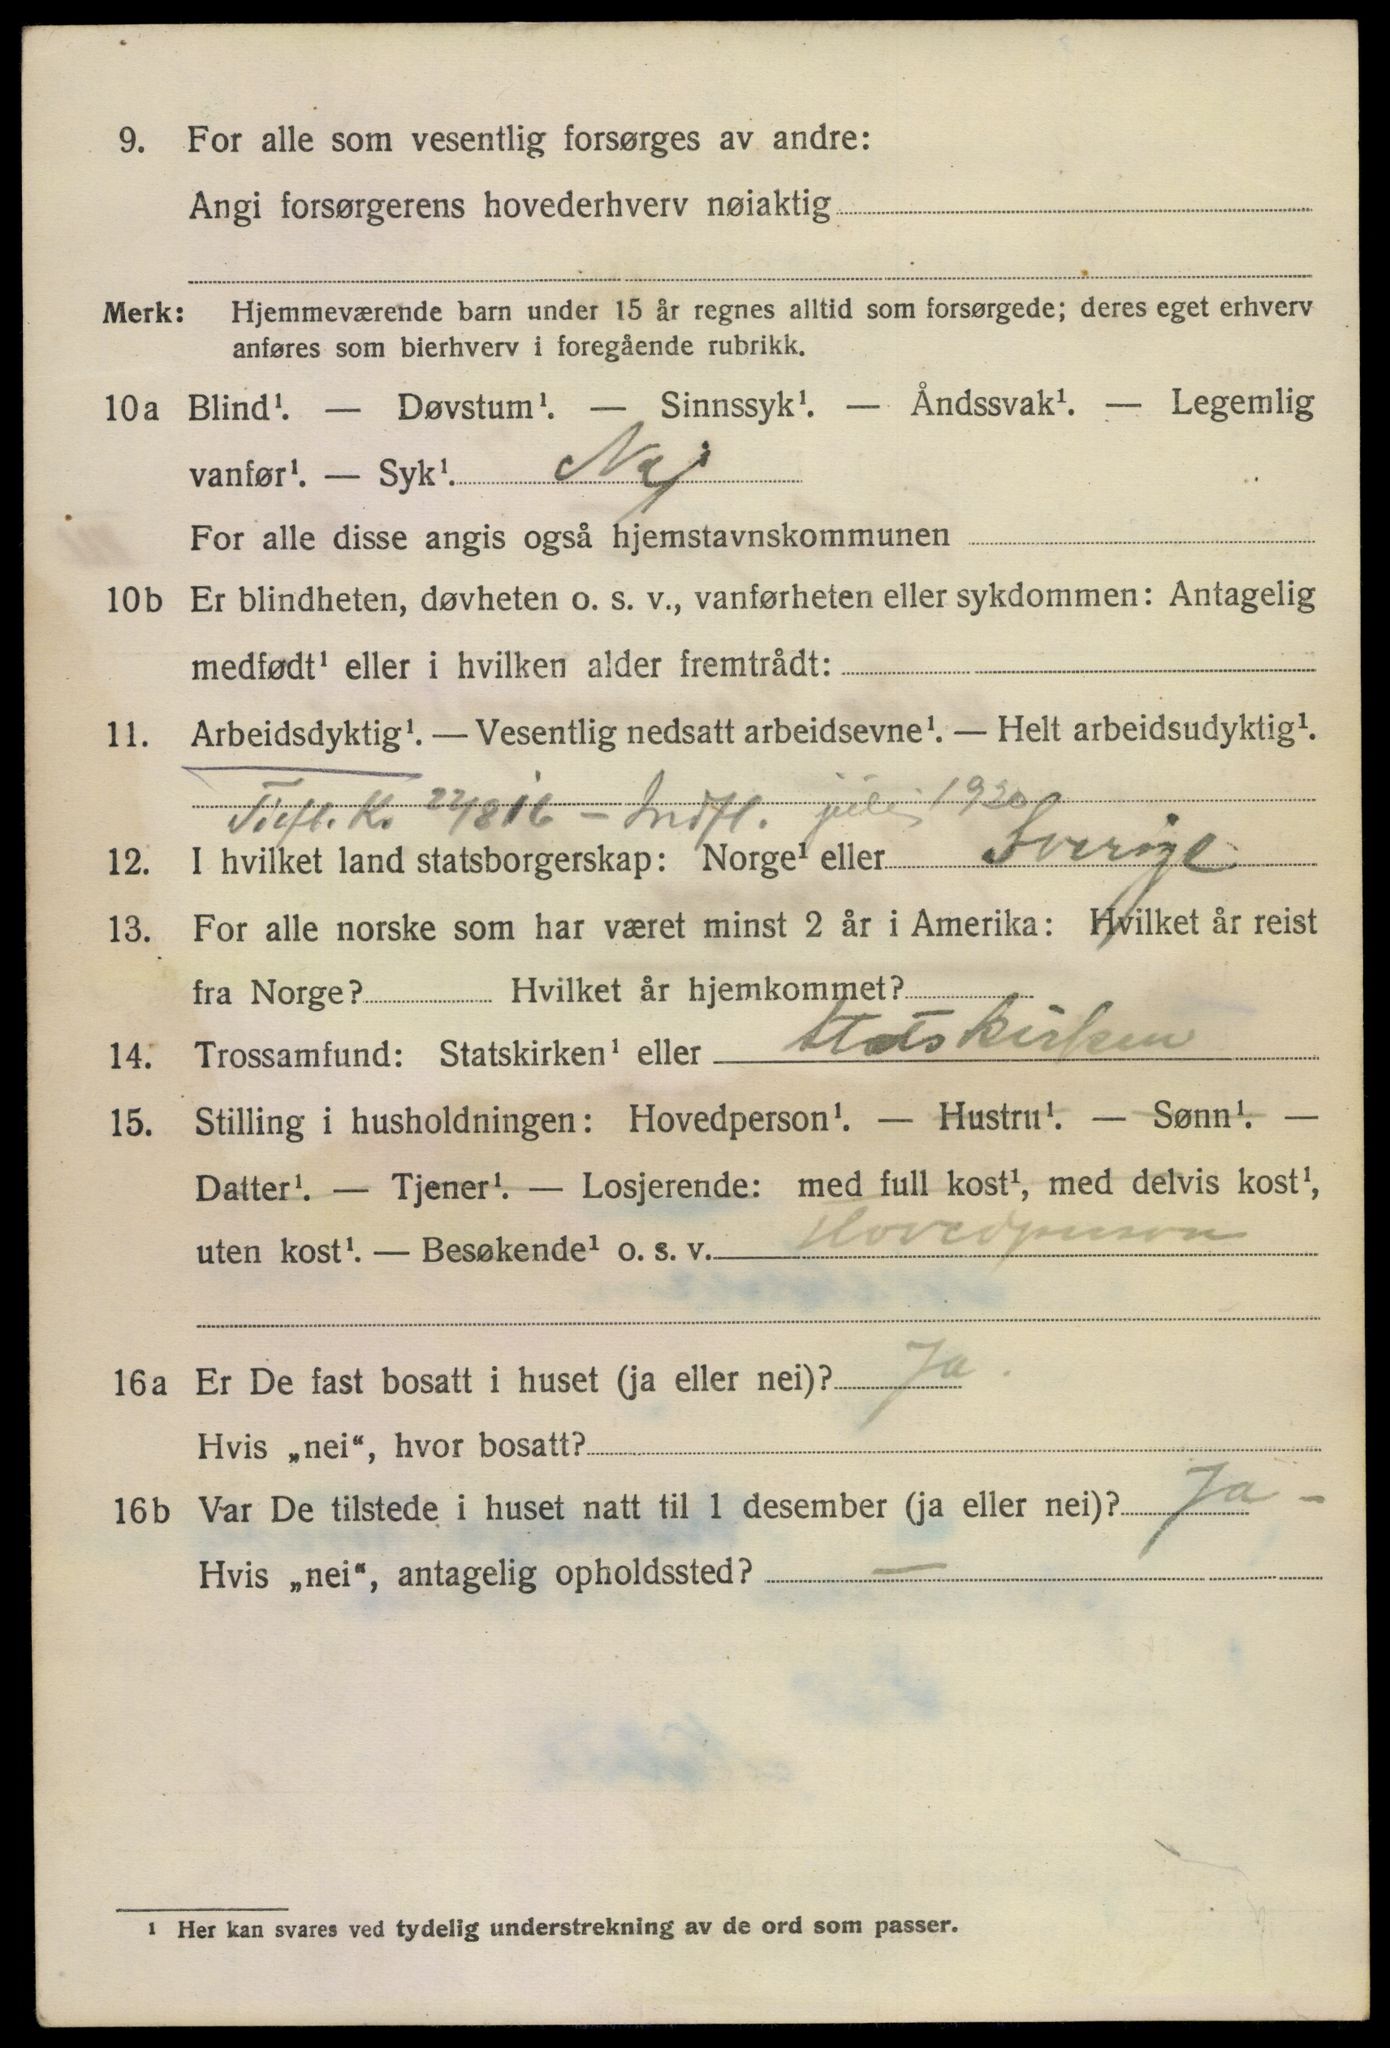 9. For alle som vesentlig forsørges av andre:
Angi forsørgerens hovederhverv nøiaktig
Merk: Hjemmeværende barn under 15 år regnes alltid som forsørgede; deres eget erhverv
anføres som bierhverv i foregående rubrikk.
10a Blind¹. — Døvstum¹. — Sinnssyk¹. — Åndssvak¹. — Legemlig
vanfør¹. — Syk¹. Nej
For alle disse angis også hjemstavnskommunen
10b Er blindheten, døvheten o. s. v., vanførheten eller sykdommen: Antagelig
medfødt¹ eller i hvilken alder fremtrådt:
11. Arbeidsdyktig¹. — Vesentlig nedsatt arbeidsevne¹. — Helt arbeidsudyktig¹.
K. 22/8 16 – Indfl. juli 1920
12. I hvilket land statsborgerskap: Norge¹ eller Sverige
13. For alle norske som har været minst 2 år i Amerika: Hvilket år reist
fra Norge? Hvilket år hjemkommet?
14. Trossamfund: Statskirken¹ eller Statskirken
15. Stilling i husholdningen: Hovedperson¹. — Hustru¹. — Sønn¹. —
Datter¹. — Tjener¹. — Losjerende: med full kost¹, med delvis kost¹,
uten kost¹. — Besøkende¹ o. s. v. Hovedperson
16a Er De fast bosatt i huset (ja eller nei)? Ja.
Hvis „nei“, hvor bosatt?
16b Var De tilstede i huset natt til 1 desember (ja eller nei)? Ja –
Hvis „nei“, antagelig opholdssted? —
¹ Her kan svares ved tydelig understrekning av de ord som passer.